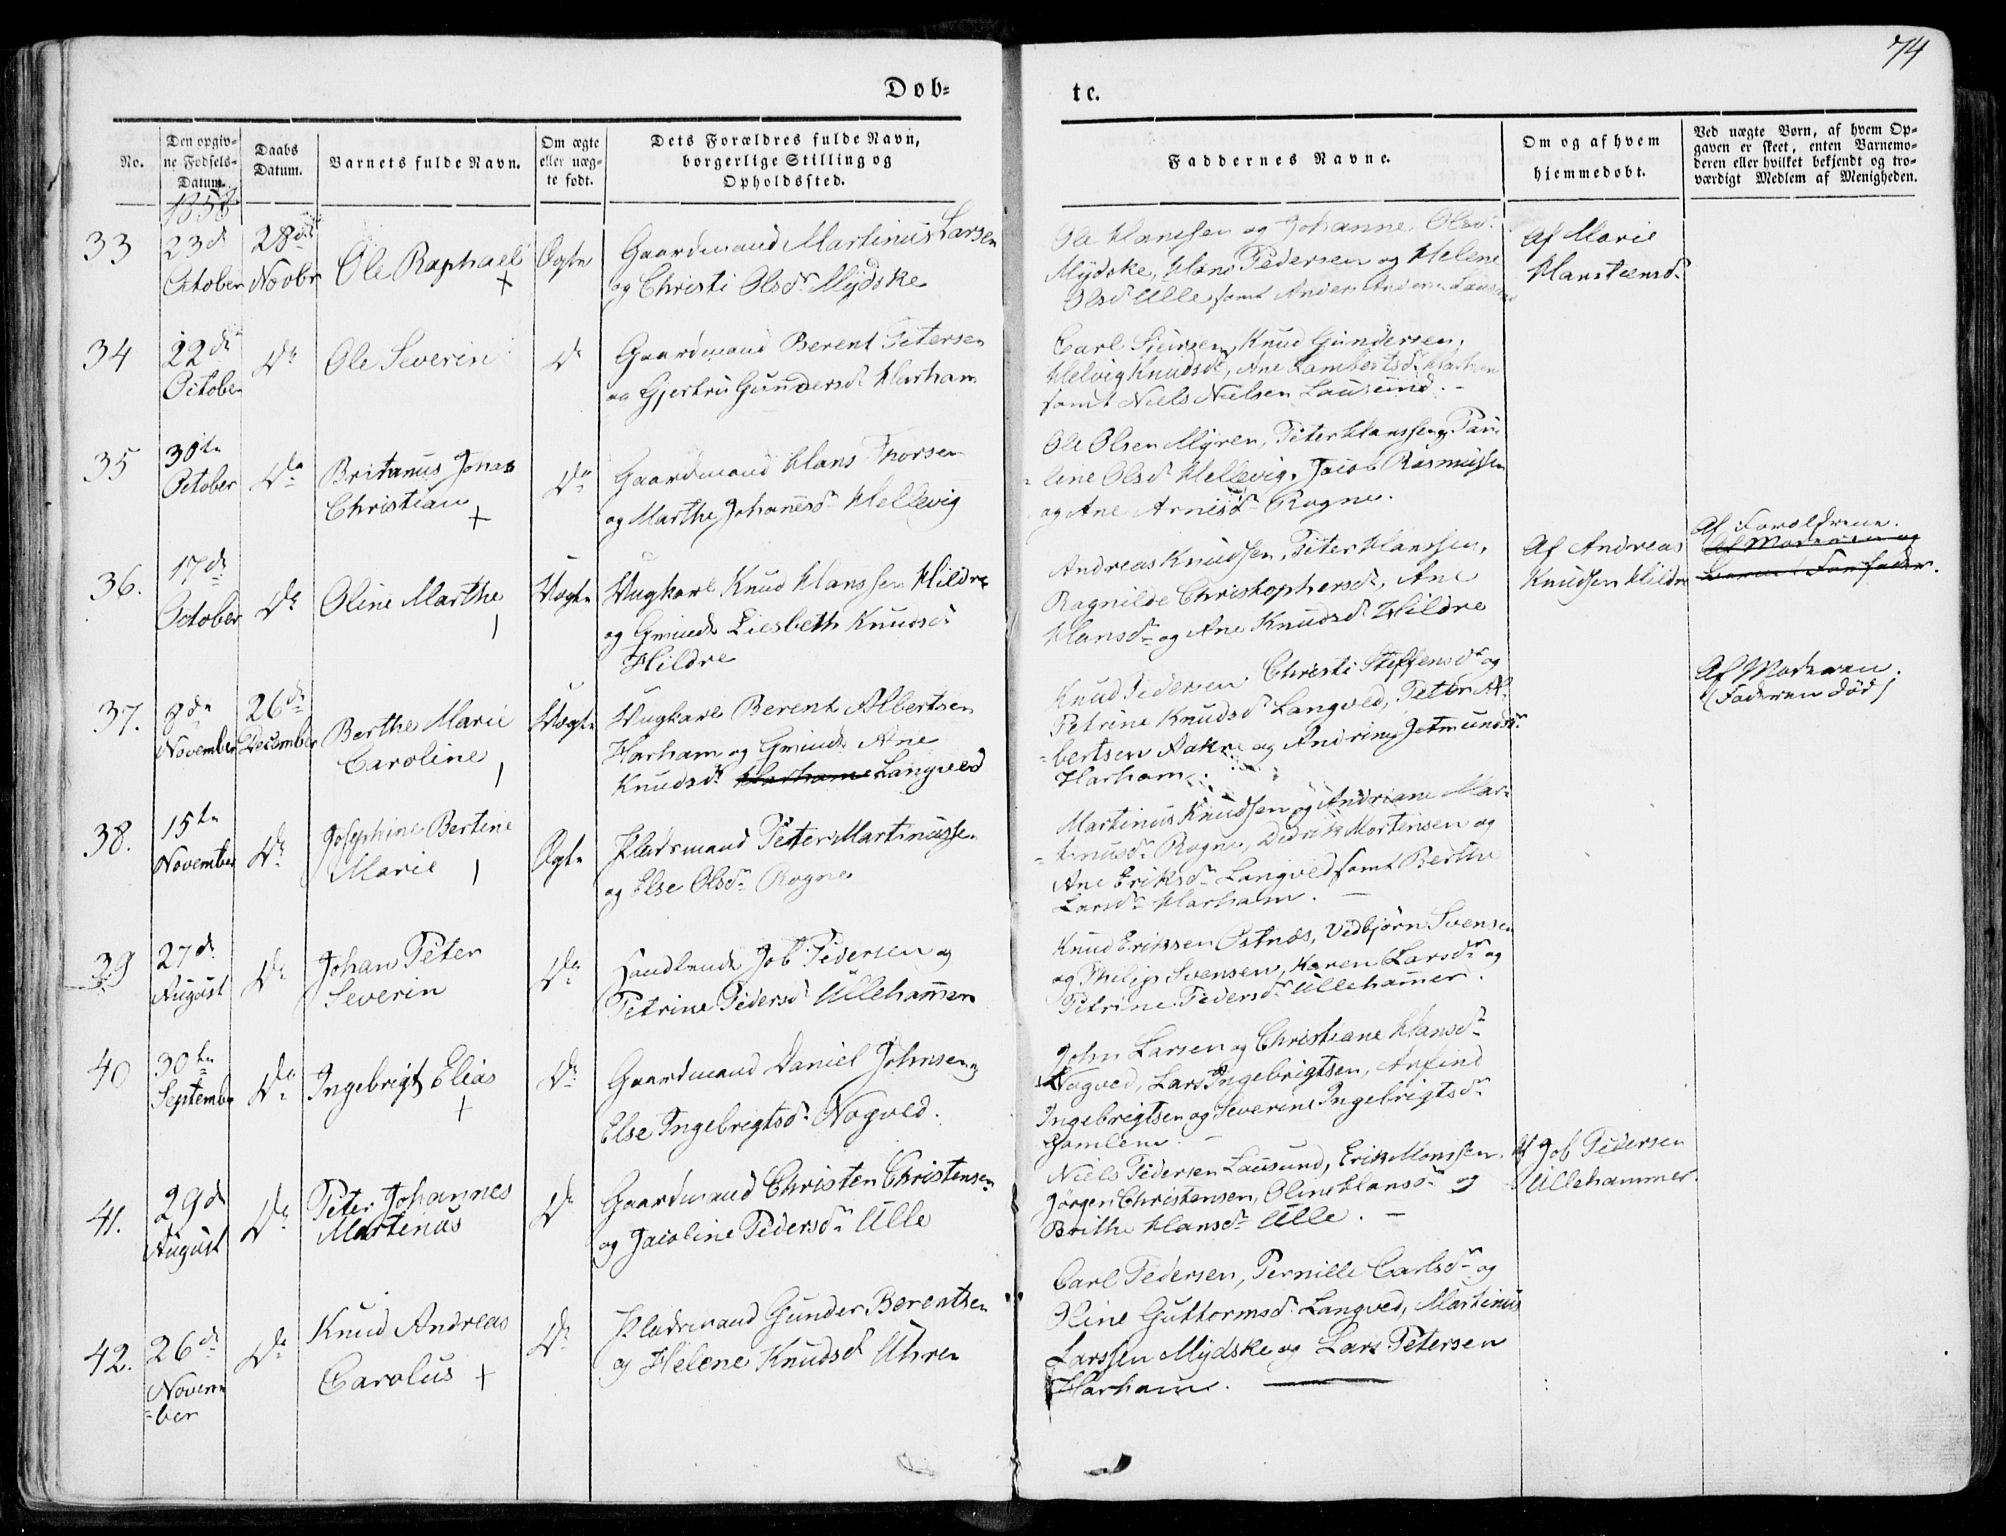 74
Døb=
te.
No.
Den opgiv-
ne Fødsels-
Datum.
Daabs
Datum.
Barnets fulde Navn.
Om ægte
eller uæg-
te født.
Dets Forældres fulde Navn,
borgerlige Stilling og
Opholdssted.
Faddernes Navne.
Om og af hvem
hjemmedøbt.
Ved uægte Børn, af hvem Op-
gaven er skeet, enten Barnemo-
deren eller hvilket bekjendt og tro-
værdigt Medlem af Menigheden.
1858
33
23d
October
28de
Novbr
Ole Raphael
+
Ægte
Gaardmand Martinus Larsen
og Christi Olsdr Mydske
Ole Hanssen og Johanne Olsdr
Mydske, Hans Pedersen og Helene
Olsdr Ulle, samt Anders Andersen
Af Marie
Hansteensdr
34
22d
October
Do
Ole Severin
Do
Gaardmand Berent Petersen
og Gjertru Gundersdr Harham
Carl Siursen, Knud Gundersen,
Helvig Knudsdr, Ane Lambertsdr Harham
samt Niels Nielsen Lausund. -
35
30te
October
Do
Britanus Jonas
Christian
+
Do
Gaardmand Hans Thorsen
og Marthe Johanesdr Hellevig
Ole Olsen Myren, Peter Hanssen,
line Olsdr Hellevig, Jacob Rasmussen
og Ane Arnesdr Rogne.
36.
17de
October
Do
Oline Marthe
Uægte
Ungkarl Knud Hanssen Hildre
og Gminde Liesbeth Knudsdr
Hildre
Andreas Knudsen, Peter Hanssen,
Ragnilde Christophersdr, Ane
Hansdr og Ane Knudsdr Hildre
Af Andreas
Knudsen Hildre
Af Forældrene.
Af Moderen og
37.
8de
November
26de
December
Berthe Marie
Caroline
Uægte
Ungkarl Berent Albertsen
Harham og Gminde Ane
Knudsdr Harham Langved
Knud Pedersen, Christi Steffensdr og
Petrine Knudsdr Langved, Peter Al-
bertsen Aakre og Andrine Jetmundsdr
Harham.
Af Moderen.
(Faderen død)
38.
15te
November
Do
Josephine Bertine
Marie
Ægte
Pladsmand Peter Martinussen
og Else Olsdr Rogne
Martinus Knudsen og Andriane Mar-
tinusdr Rogne, Didrik Mortensen og
Ane Eriksdr Langved samt Berthe
Larsdr Harham.
39
27d
August
Do
Johan Peter
Severin
Do
Handlende Job Pedersen og
Petrine Pedersdr Ullehammer
Knud Eriksen Østnæs, Vedbjørn Svensen
og Philip Svensen, Karen Larsdr og
Petrine Pedersdr Ullehammer.
40
30te
September
Do
Ingebrigt Elias
+
Do
Gaardmand Daniel Johnsen og
Else Ingebrigtsdr Nogved.
John Larsen og Christiane Hansdr
Nogved, Lars Ingebrigtsen, Arfind
Ingebrigtsen og Severine Ingebrigtsdr
Gamlem. -
41.
29d
August
Do
Peter Johannes
Martenus
Do
Gaardmand Christen Christensen
og Jacoline Pedersdr Ulle
Niels Pedersen Lausund, Erik Monssen,
Jørgen Christensen, Oline Hansdr og
Brithe Hansdr Ulle. -
Af Job Pedersen
Ullehammer.
42.
26d
Novem
=ber
Do
Knud Andreas
Carolus +
Do
Pladsmand Gunder Berentsen
og Helene Knudsdr Uhre
Carl Pedersen, Pernille Carlsdr og
Oline Guttormsdr Langved, Martinus
Larssen Mydske og Lars Petersen
Harham.